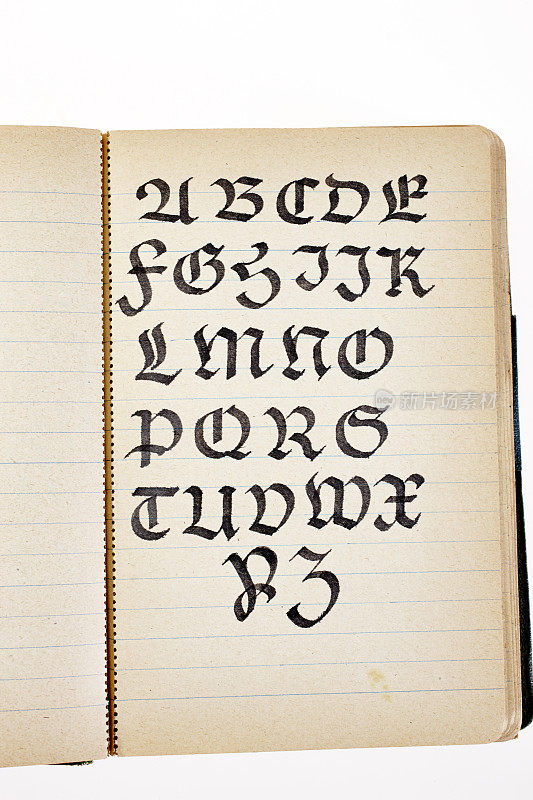 ABCDE
FGHIJK
LMNO
PQRS
TUVWX
YZ
new 新片场素材